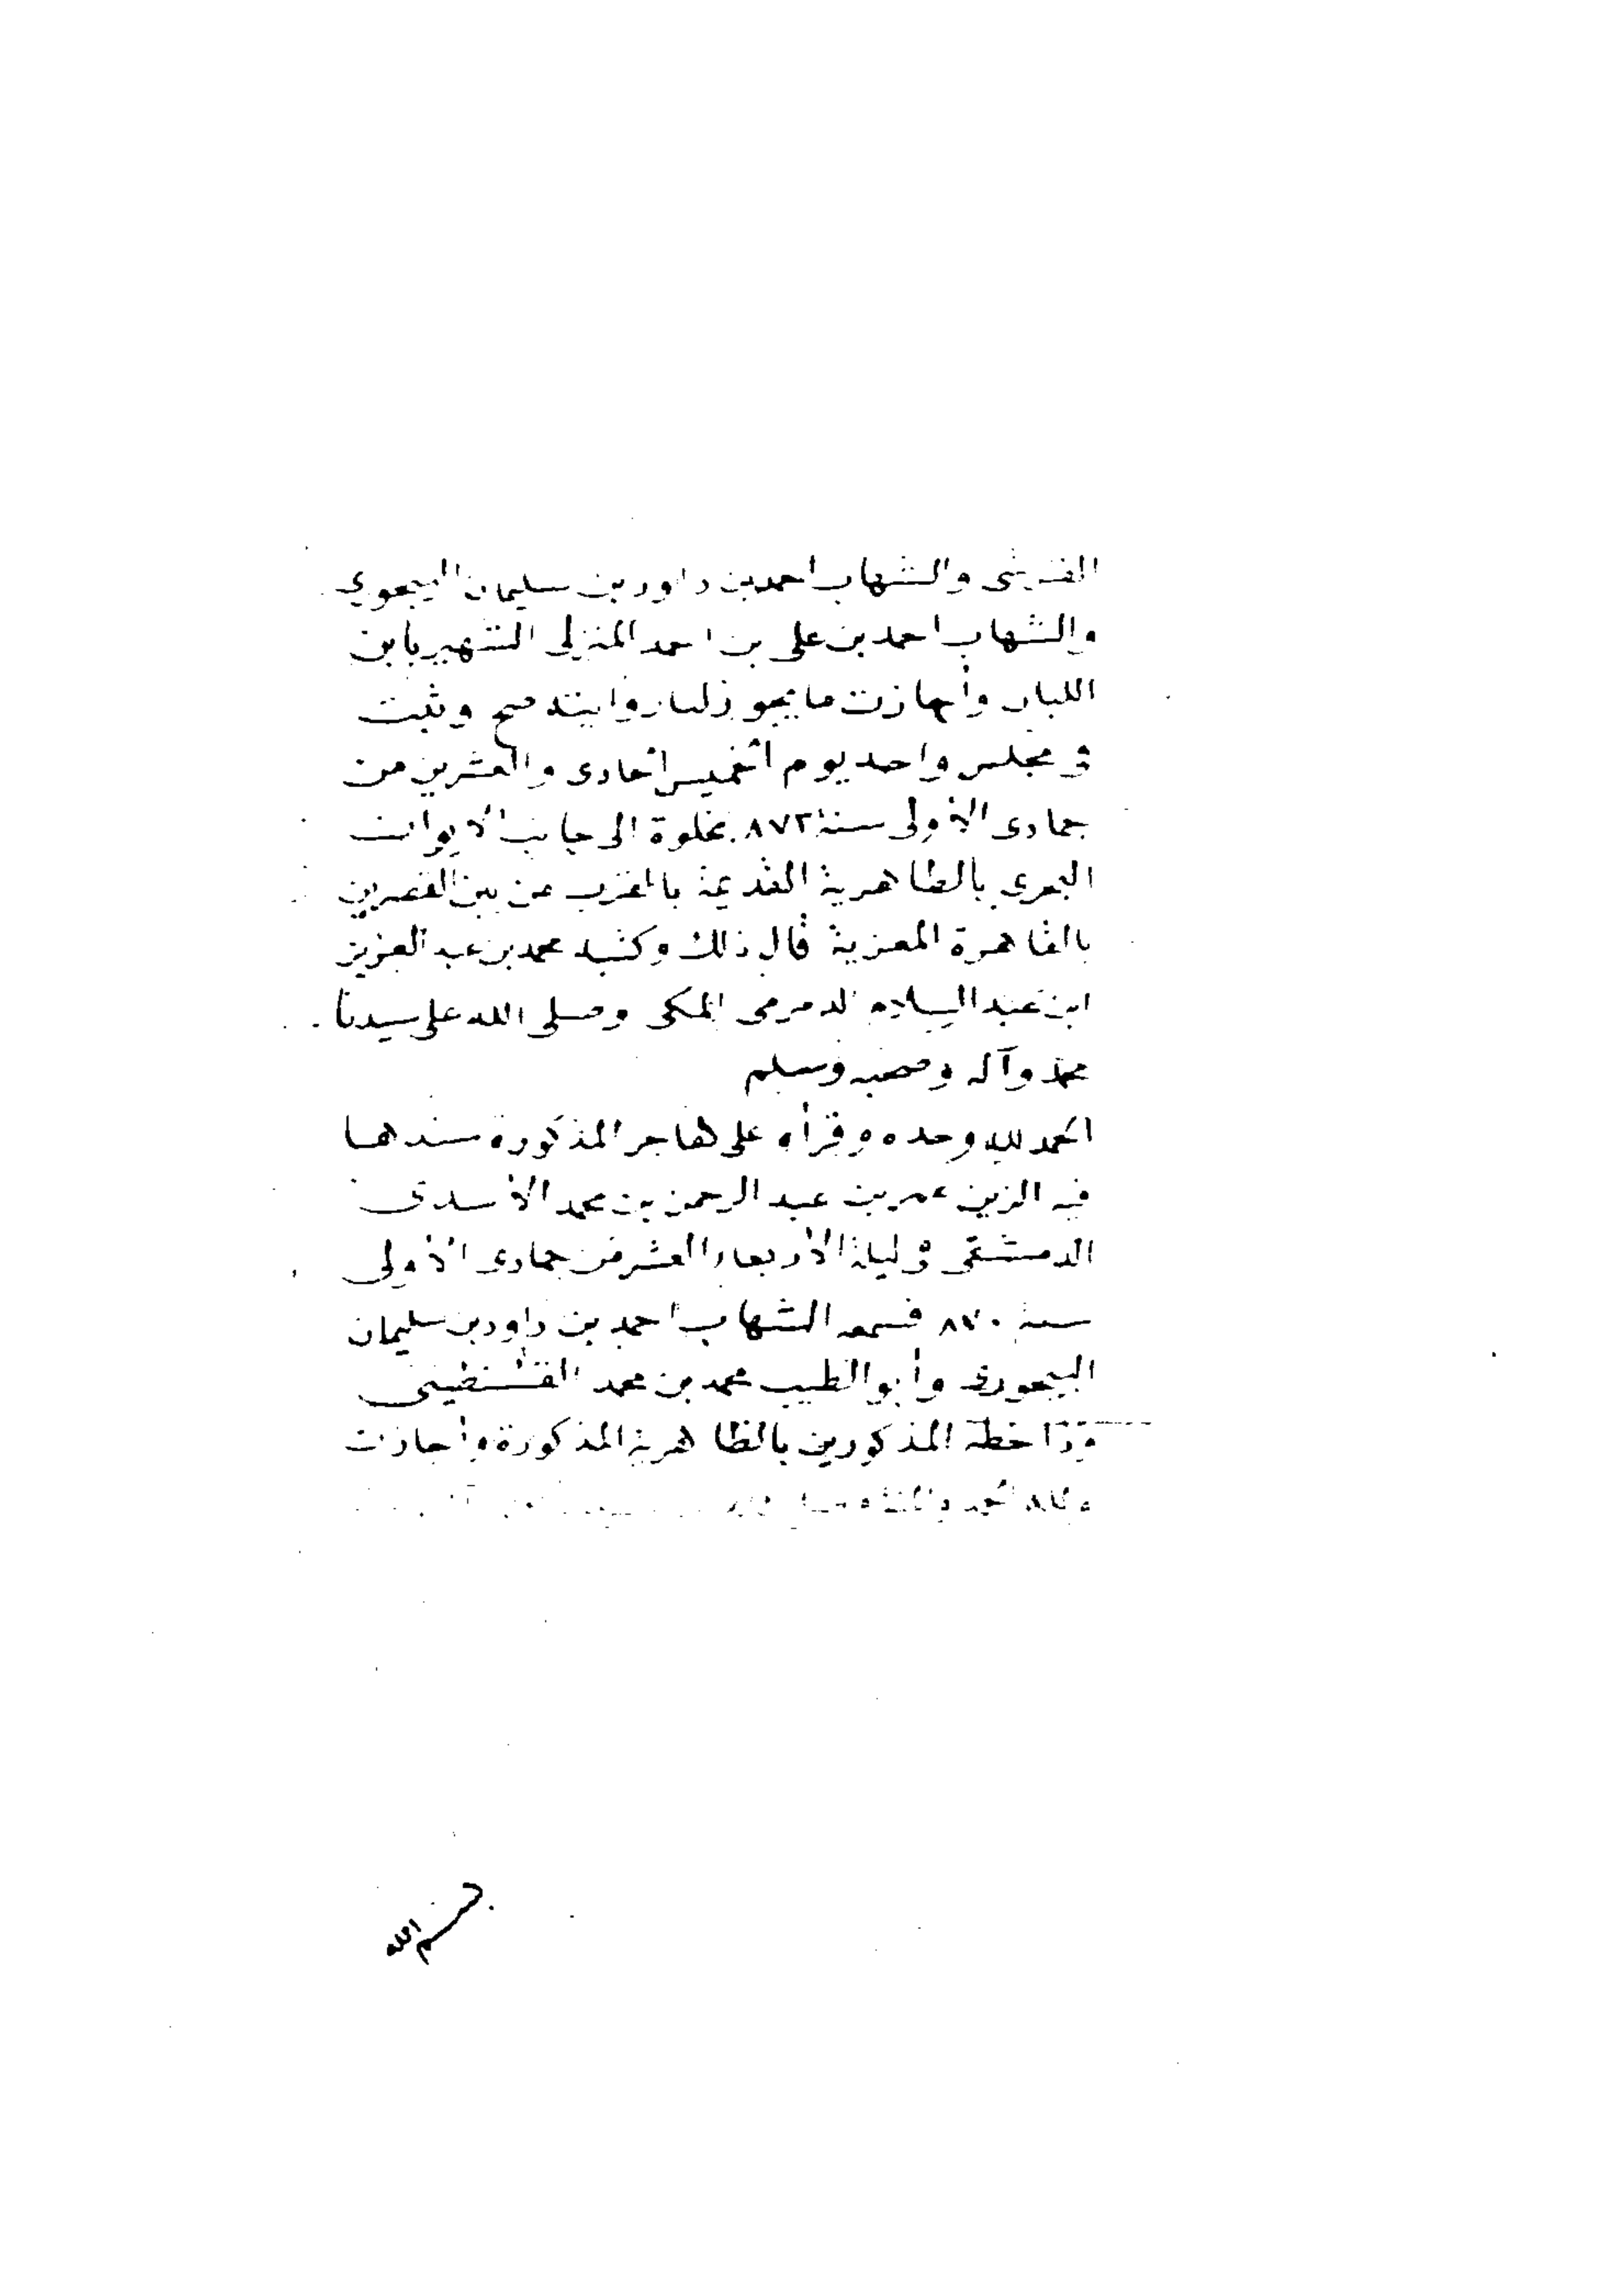 والشهاب احمد بن داود بن سليمان البيجوري
والشهاب احمد بن على بن احمد المنزلى الشهير بابن
اللبان وأجازت ما يجوز لها روايته صح وثبت
في مجلس واحد يوم الخميس الحادى والعشرين من
جمادى الأولى سنة ٨٧٢ بخلوة الى جانب الايوان
البحرى بالظاهرية القديمة بالقرب من بين القصرين
بالقاهرة المعزية قال ذلك وكتبه محمد بن عبد العزيز
ابن عبد السلام المكى وصلى الله على سيدنا
محمد وآله وصحبه وسلم
الحمد لله وحده وقرأه على هاجر المذكورة سندها
فيه الزين عمر بن عبد الرحمن بن محمد الأسدى
الدمشقى في ليلة الأربعاء العشر من جمادى الأولى
سنة ٨٧٠ فسمعه الشهاب احمد بن داود بن سليمان
البيجورى وأبو الطيب محمد بن محمد
المذكورين بالظاهرية المذكورة وأجازت
ولله الحمد والمنة
بسم الله